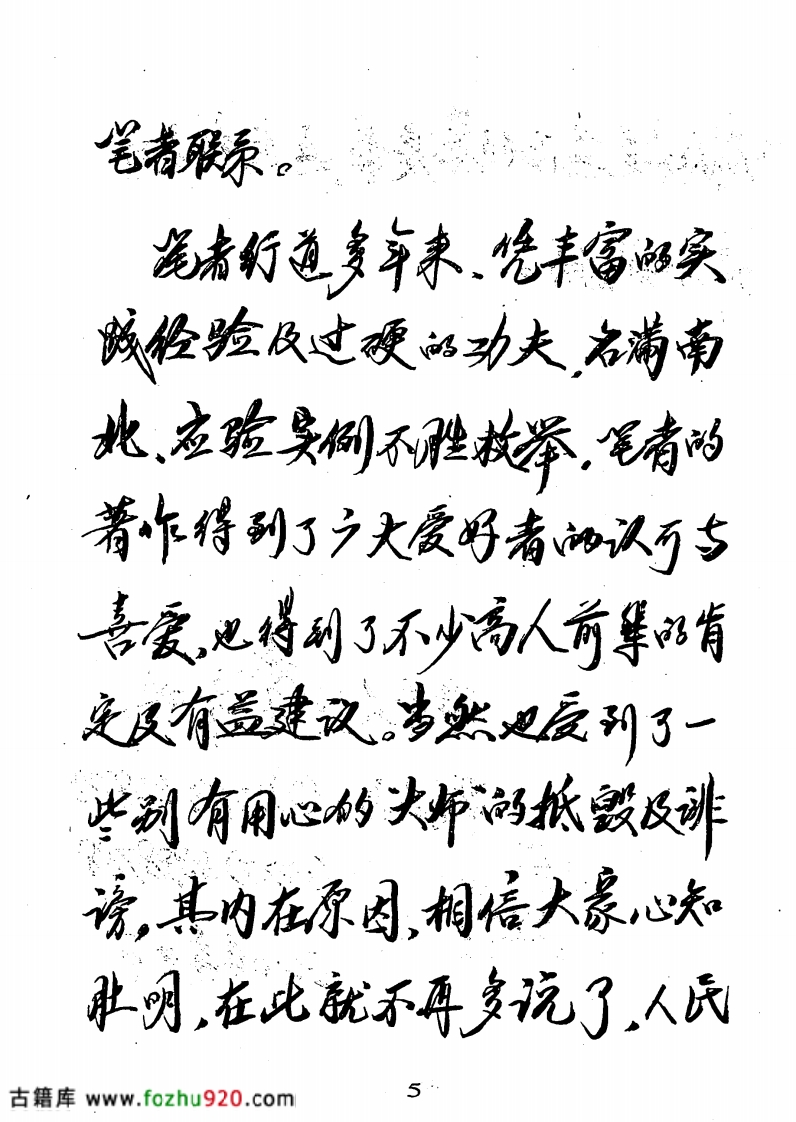 笔者联系。
笔者行道多年来、凭丰富的实
践经验及过硬的功夫,名满南
北、应验实例不胜枚举,笔者的
著作得到了广大爱好者的认可与
喜爱,也得到了不少高人前辈的肯
定及有益建议。当然也受到了一
些别有用心的“大师”的抵毁及诽
谤,其内在原因,相信大家心知
肚明,在此就不再多说了,人民
5
古籍库 www.fozhu920.com